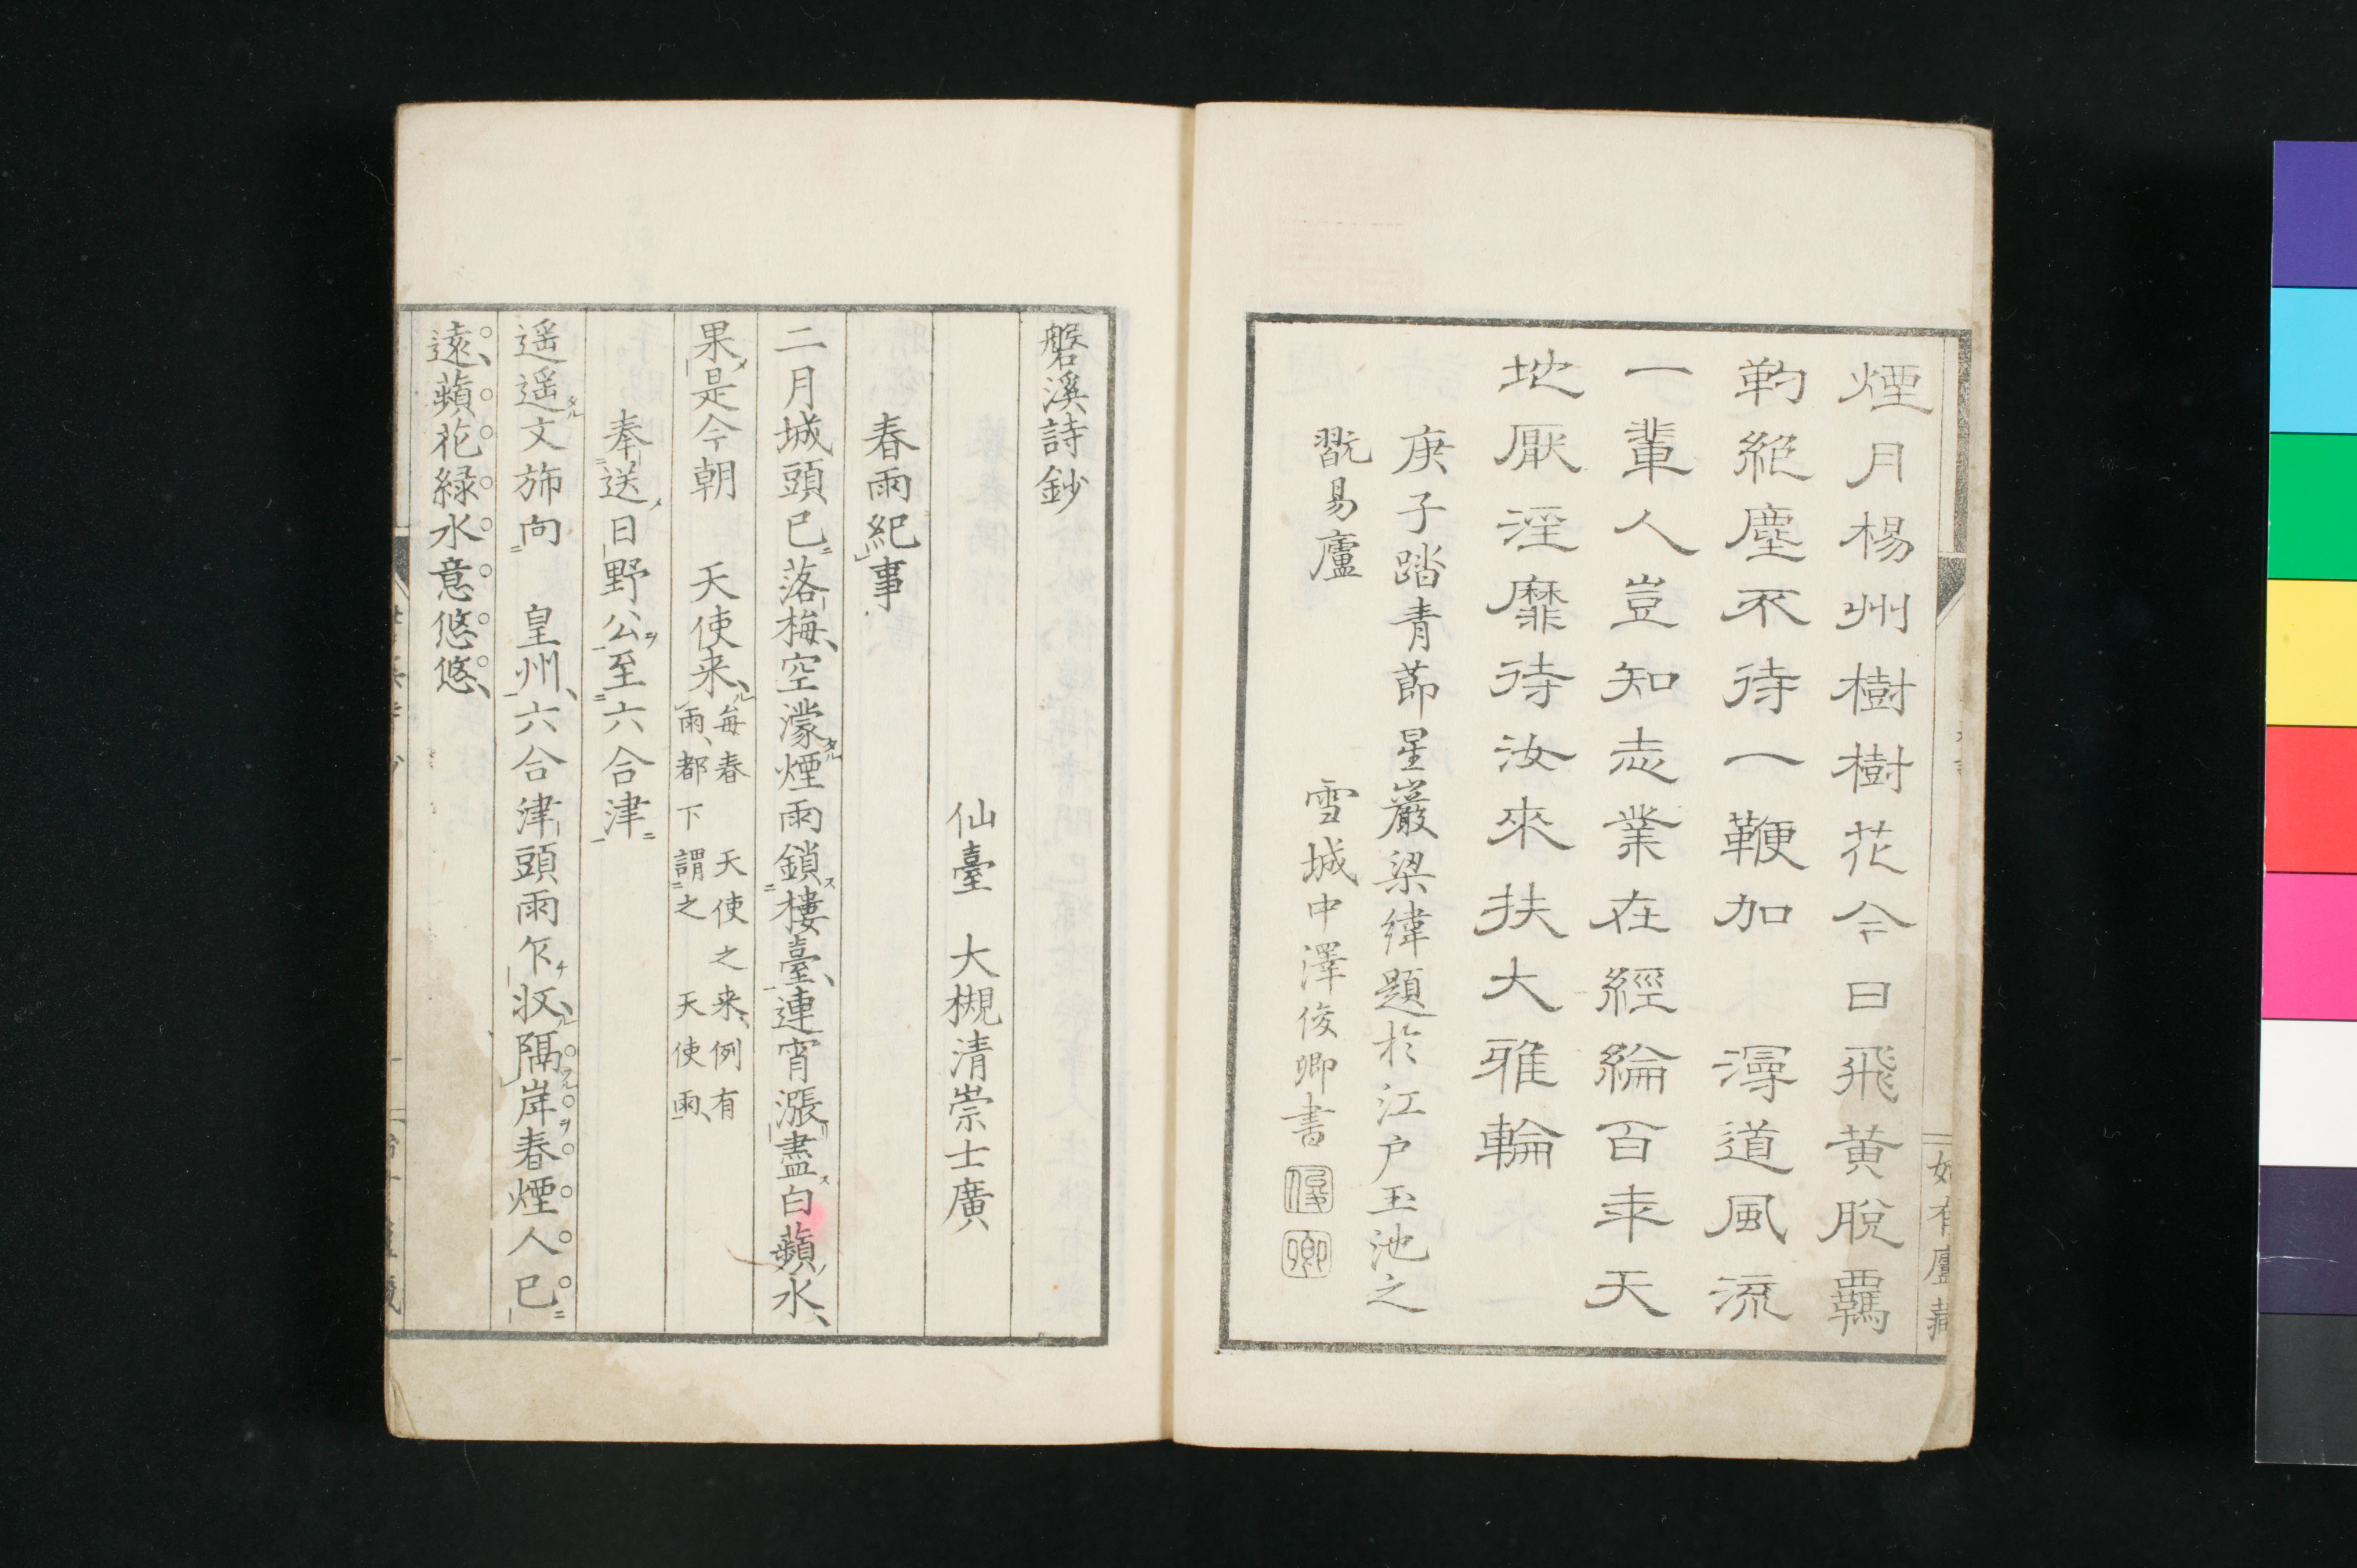 煙月楊州樹樹花今日飛黄脫羈
靮絕塵不待一鞭加　漫道風流
一輩人豈知志業在經綸百年天
地厭淫靡待汝來扶大雅輪
庚子踏青節星巖梁緯題於江戶玉池之
翫易廬
雪城中澤俊卿書
俊
卿
磐溪詩鈔
仙臺　大槻清崇士廣
春雨紀事
二月城頭已落梅空濛煙雨鎖樓臺連宵漲盡白蘋水
果是今朝　天使来
每春　天使之来例有
雨都下謂之　天使雨
奉送日野公至六合津
遥遥文斾向　皇州六合津頭雨乍収隔岸春煙人已
遠蘋花緑水意悠悠